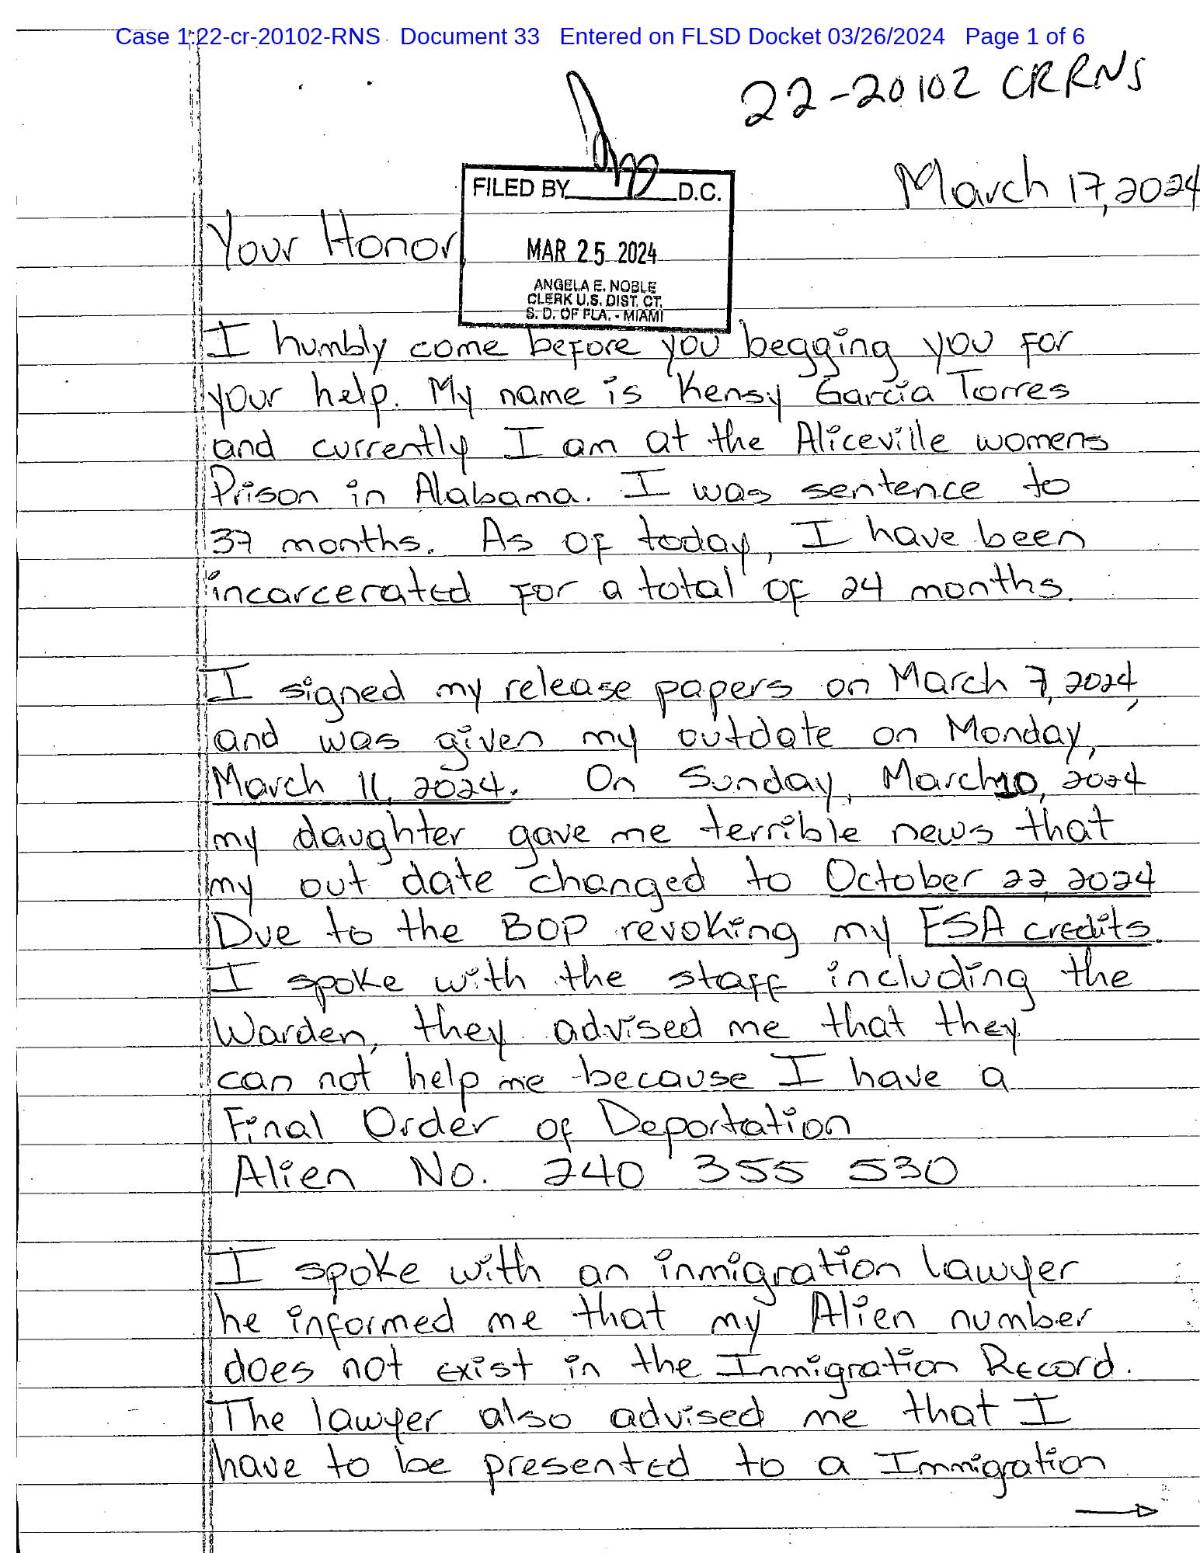 Case 1:22-cr-20102-RNS Document 33 Entered on FLSD Docket 03/26/2024 Page 1 of 6
22-20102 CRRNS
FILED BY D.C.
March 17, 2024
Your Honor
MAR 25 2024
ANGELA E. NOBLE
CLERK U.S. DIST. CT.
S. D. OF FLA. - MIAMI
I humbly come before you begging you for
your help. My name is Kensy Garcia Torres
and currently I am at the Aliceville womens
Prison in Alabama. I was sentence to
37 months. As of today, I have been
incarcerated for a total of 24 months.
I signed my release papers on March 7, 2024,
and was given my outdate on Monday,
March 11, 2024. On Sunday, March 10, 2024
my daughter gave me terrible news that
my out date changed to October 22, 2024
Due to the BOP revoking my FSA credits.
I spoke with the staff including the
Warden, they advised me that they
can not help me because I have a
Final Order of Deportation
Alien No. 240 355 530
I spoke with an inmigration lawyer
he informed me that my Alien number
does not exist in the Inmigration Record.
The lawyer also advised me that I
have to be presented to a Immigration